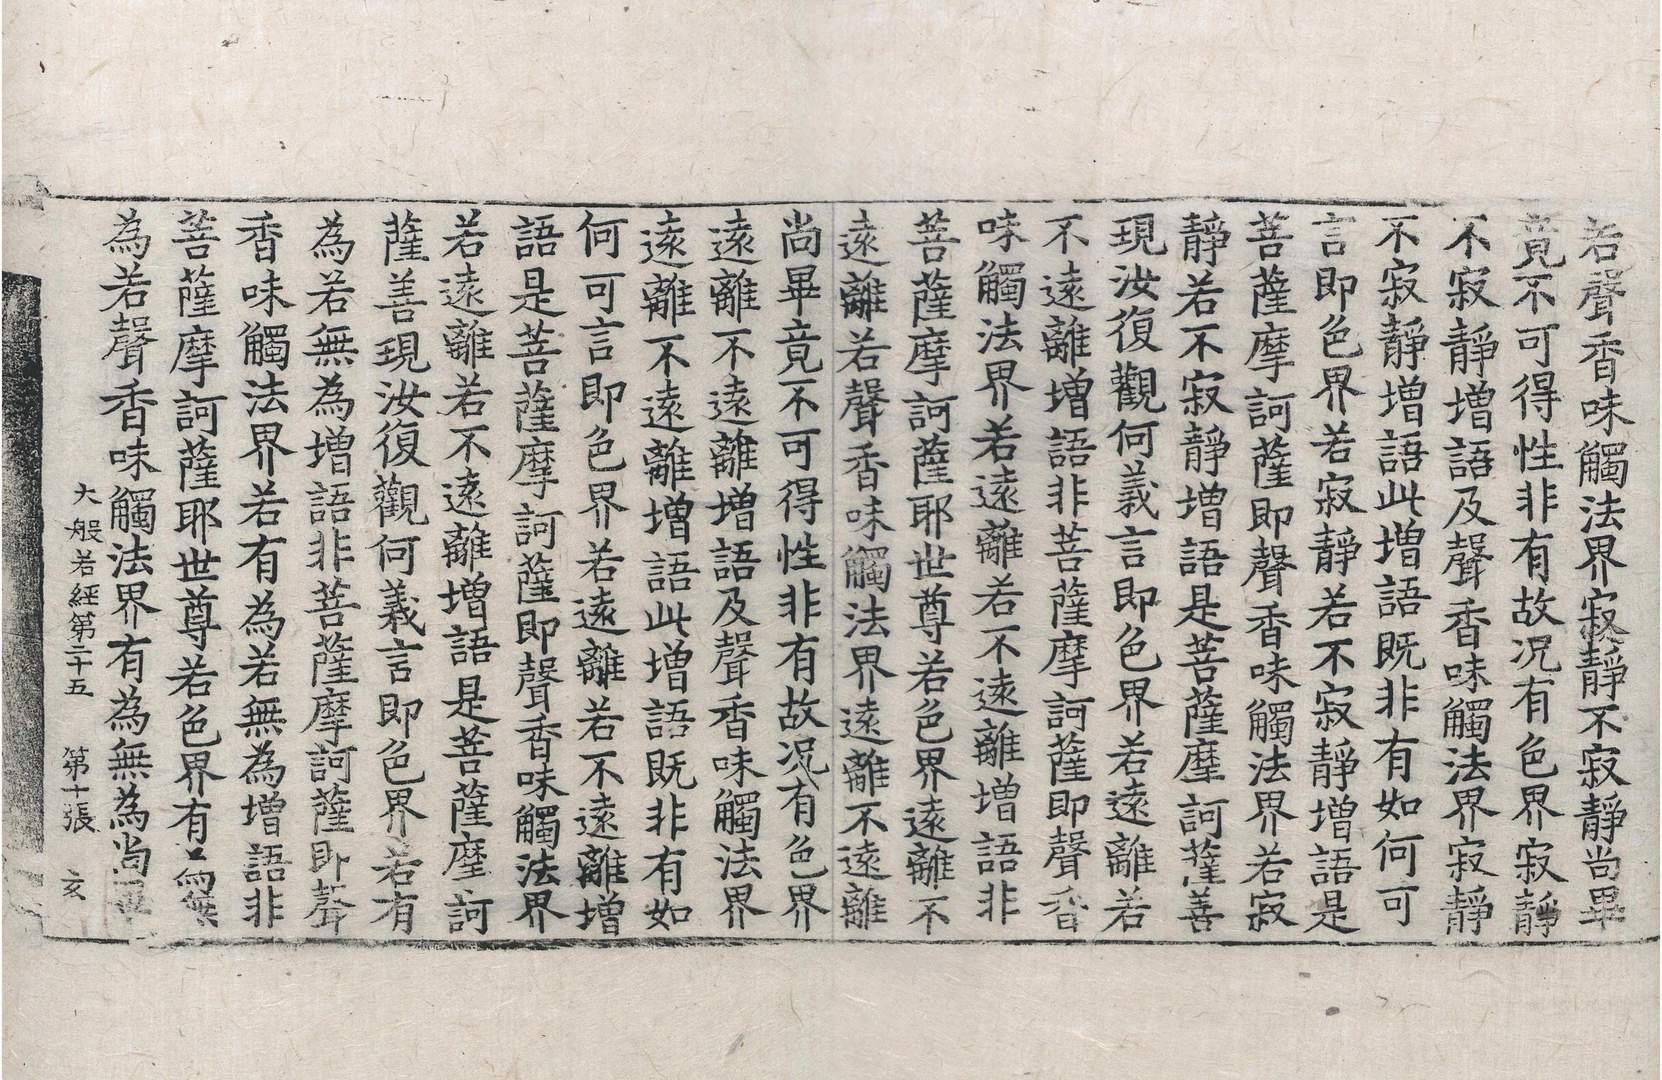 若聲香味觸法界寂靜不寂靜尚畢
竟不可得性非有故况有色界寂靜
不寂靜增語及聲香味觸法界寂靜
不寂靜增語此增語既非有如何可
言即色界若寂靜若不寂靜增語是
菩薩摩訶薩即聲香味觸法界若寂
靜若不寂靜增語是菩薩摩訶薩善
現汝復觀何義言即色界若遠離若
不遠離增語非菩薩摩訶薩即聲香
味觸法界若遠離若不遠離增語非
菩薩摩訶薩耶世尊若色界遠離不
遠離若聲香味觸法界遠離不遠離
尚畢竟不可得性非有故况有色界
遠離不遠離增語及聲香味觸法界
遠離不遠離增語此增語既非有如
何可言即色界若遠離若不遠離增
語是菩薩摩訶薩即聲香味觸法界
若遠離若不遠離增語是菩薩摩訶
薩善現汝復觀何義言即色界若有
為若無為增語非菩薩摩訶薩即聲
香味觸法界若有為若無為增語非
菩薩摩訶薩耶世尊若色界有為無
為若聲香味觸法界有為無為尚畢
大般若經第二十五 第十張 玄